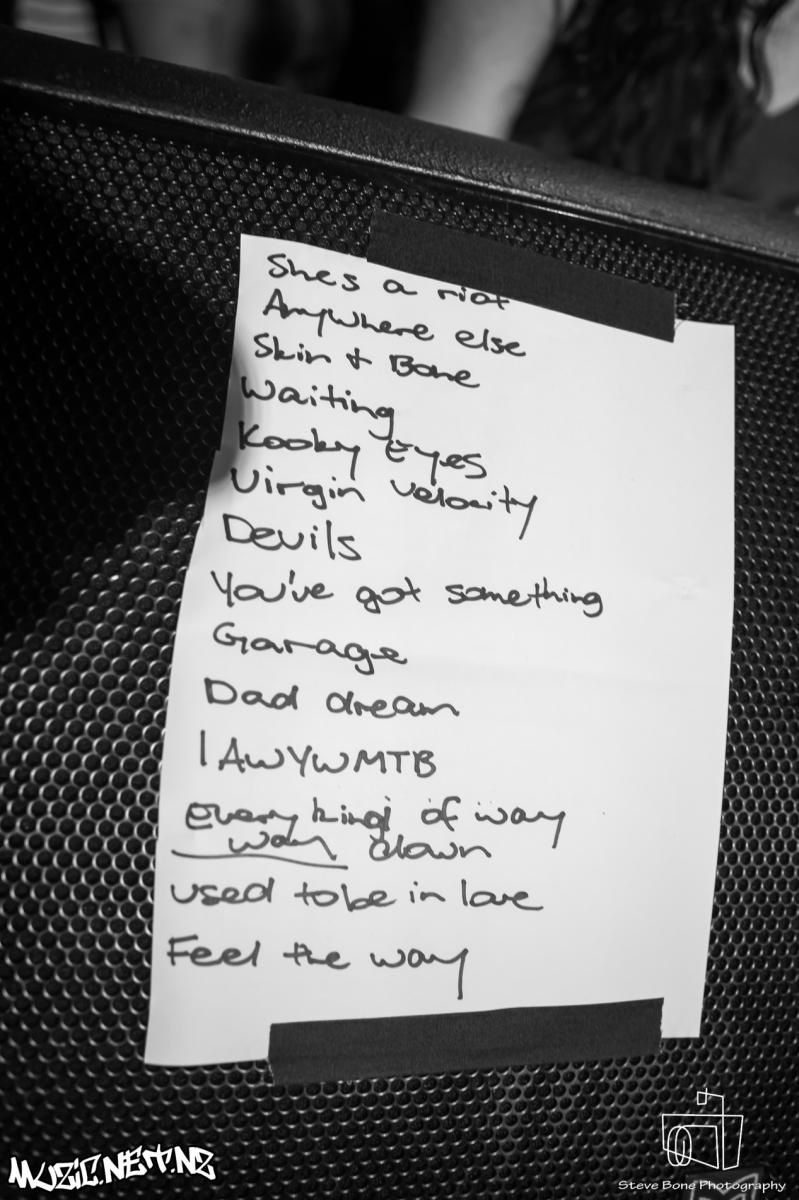 Shes a riot
Anywhere else
Skin + Bone
Waiting
Kooky Eyes
Virgin velocity
Devils
You've got something
Garage
Dad dream
IAWYWMTB
Every kind of way
way down
used to be in love
Feel the way
MUZIC.NET.NZ
Steve Bone Photography